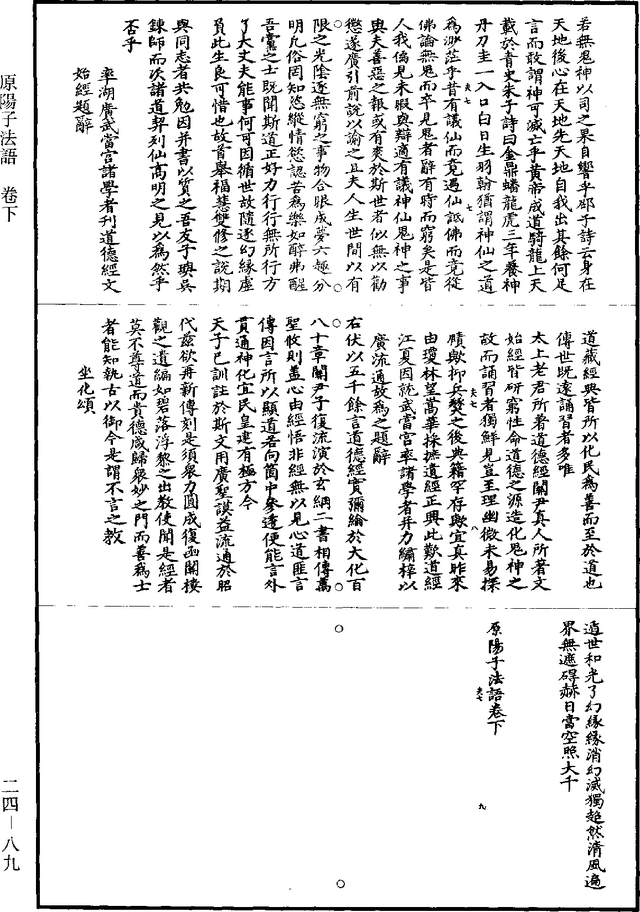 若無鬼神以司之果自響乎邵子詩云身在
天地後心在天地先天地自我出其餘何足
言而敢謂神可滅亡乎黄帝成道騎龍上天
載於青史朱子詩曰金鼎蟠龍虎三年養神
丹刀圭一入口白日生羽翰猶謂神仙之道
為渺茫乎昔有議仙而竟遇仙詆佛而竟從
佛論無鬼而卒見鬼者辭有時而窮矣是皆
人我偏見未暇與辯適有議神仙鬼神之事
與夫善惡之報或有爽於斯世者似無以勸
懲遂廣引前說以諭之且夫人生世間以有
限之光陰逐無窮之事物合眼成夢六趣分
明凡俗罔知恣縱情慾認苦為樂如醉弗醒
吾黨之士既聞斯道正好力行行無所行方
了大丈夫能事何可因循世故隨逐幻緣虚
負此生良可惜也故首舉福慧雙修之說期
與同志者共勉因并書以質之吾友于
鍊師而次諸道契列仙高明之見以為然乎
否乎
率湖廣武當宫諸學者刊道德經文
始經題辭
道藏經典皆所以化民為善而至於道也
傳世既遠誦習者多唯
太上老君所著道德經關尹真人所著文
始經皆研窮性命道德之源造化鬼神之
故而誦習者獨鮮見豈至理幽微未易探
賾歟抑兵燹之後典籍罕存歟宜真昨來
由瓊林望嵩華採摭遺經正興此歎道經
江夏因就武當宫率諸學者并力繡梓以
廣流通故為之題辭
右伏以五千餘言道德經實彌綸於大化百
八十章關尹子復流演於玄綱二書相傳萬
聖收則盖心由經悟非經無以見心道匪言
傳因言所以顯道若向箇中參透便能言外
貫通神化宜民皇建有極方今
天子已訓註於斯文用廣聖謨益流通於昭
代兹欲再新傳刻是須衆力圓成復函關樓
觀之遺編如碧落浮黎之出敎使聞是經者
莫不尊道而貴德咸歸衆妙之門而善為士
者能知執古以御今是謂不言之教
坐化頌
遁世和光了幻緣緣消幻滅獨超然清風遍
界無遮碍赫日當空照大千
原陽子法語卷下
夫七
七
夫七
八
夫七
九
原陽子法語　卷下
二四－八九